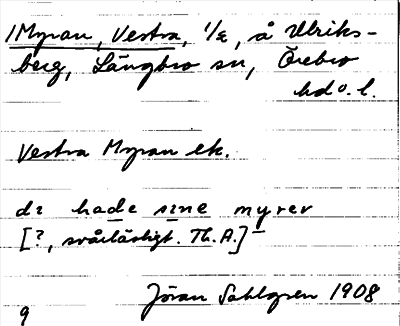 /Myran, Vestra, 1/2, å Ulriks-
berg, Längbro sn, Örebro
hd o. l.
Vestra Myran ek.
di hade sine myrer
[?, svårläsligt. Th. A.]
Jöran Sahlgren 1908
9